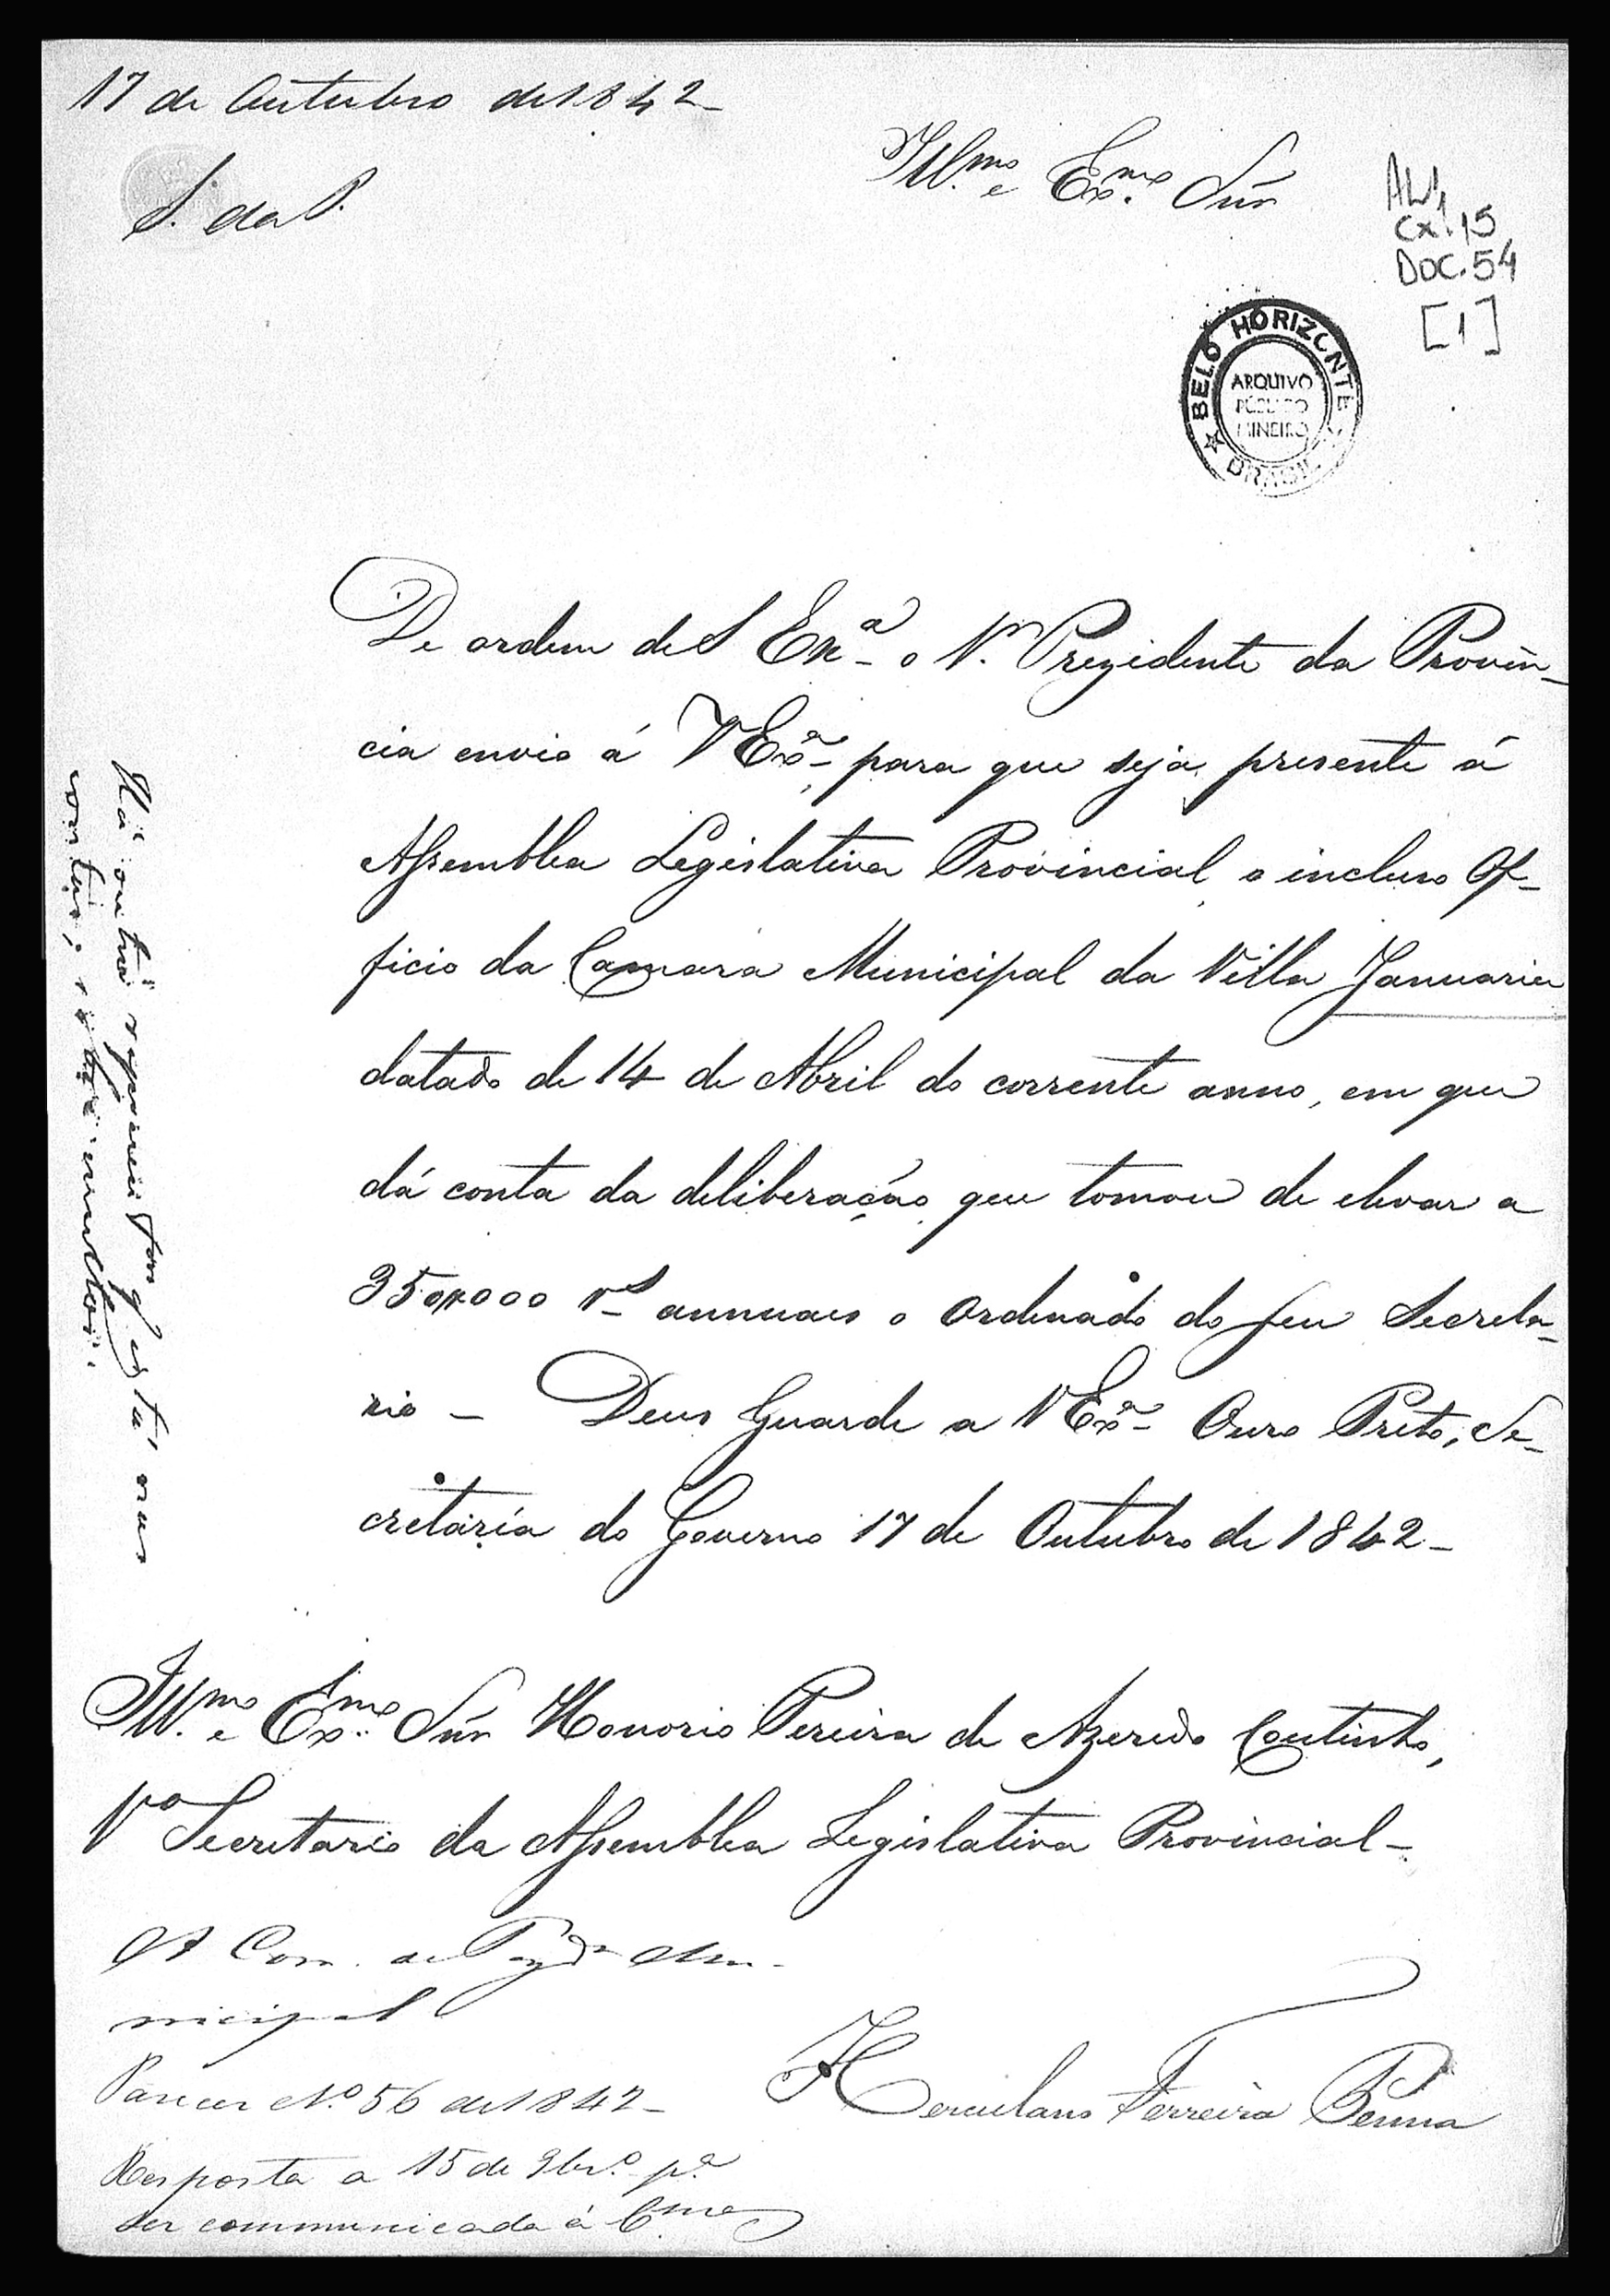 17 de Outubro de 1842
S. da P.
Ill.mo e Ex.mo Snr
AL1
Cx. 15
DOC. 54
[1]
BELO HORIZONTE
ARQUIVO
PÚBLICO
MINEIRO
BRASIL
De ordem de S Exª o Snr. Prezidente da Provin-
cia envio á V Exª para que seja presente á
Assemblea Legislativa Provincial o incluso Of-
ficio da Camara Municipal da Villa Januaria
datado de 14 de Abril do corrente anno, em que
dá conta da deliberação que tomou de elevar a
350$000 rs annuaes o Ordenado do seu Secreta-
rio - Deus Guarde a V Exª Ouro Preto, Se-
cretaria do Governo 17 de Outubro de 1842 -
Ill.mo e Ex.mo Snr Honorio Pereira de Azeredo Coutinho,
1º Secretario da Assemblea Legislativa Provincial -
A Com. de Fazdª Mu-
nicipal
Herculano Ferreira Penna
Parecer Nº 56 de 1842 -
Resposta a 15 de 9brº pª
ser communicada á Cmª
Há outro requerimto q está nas
contas, e